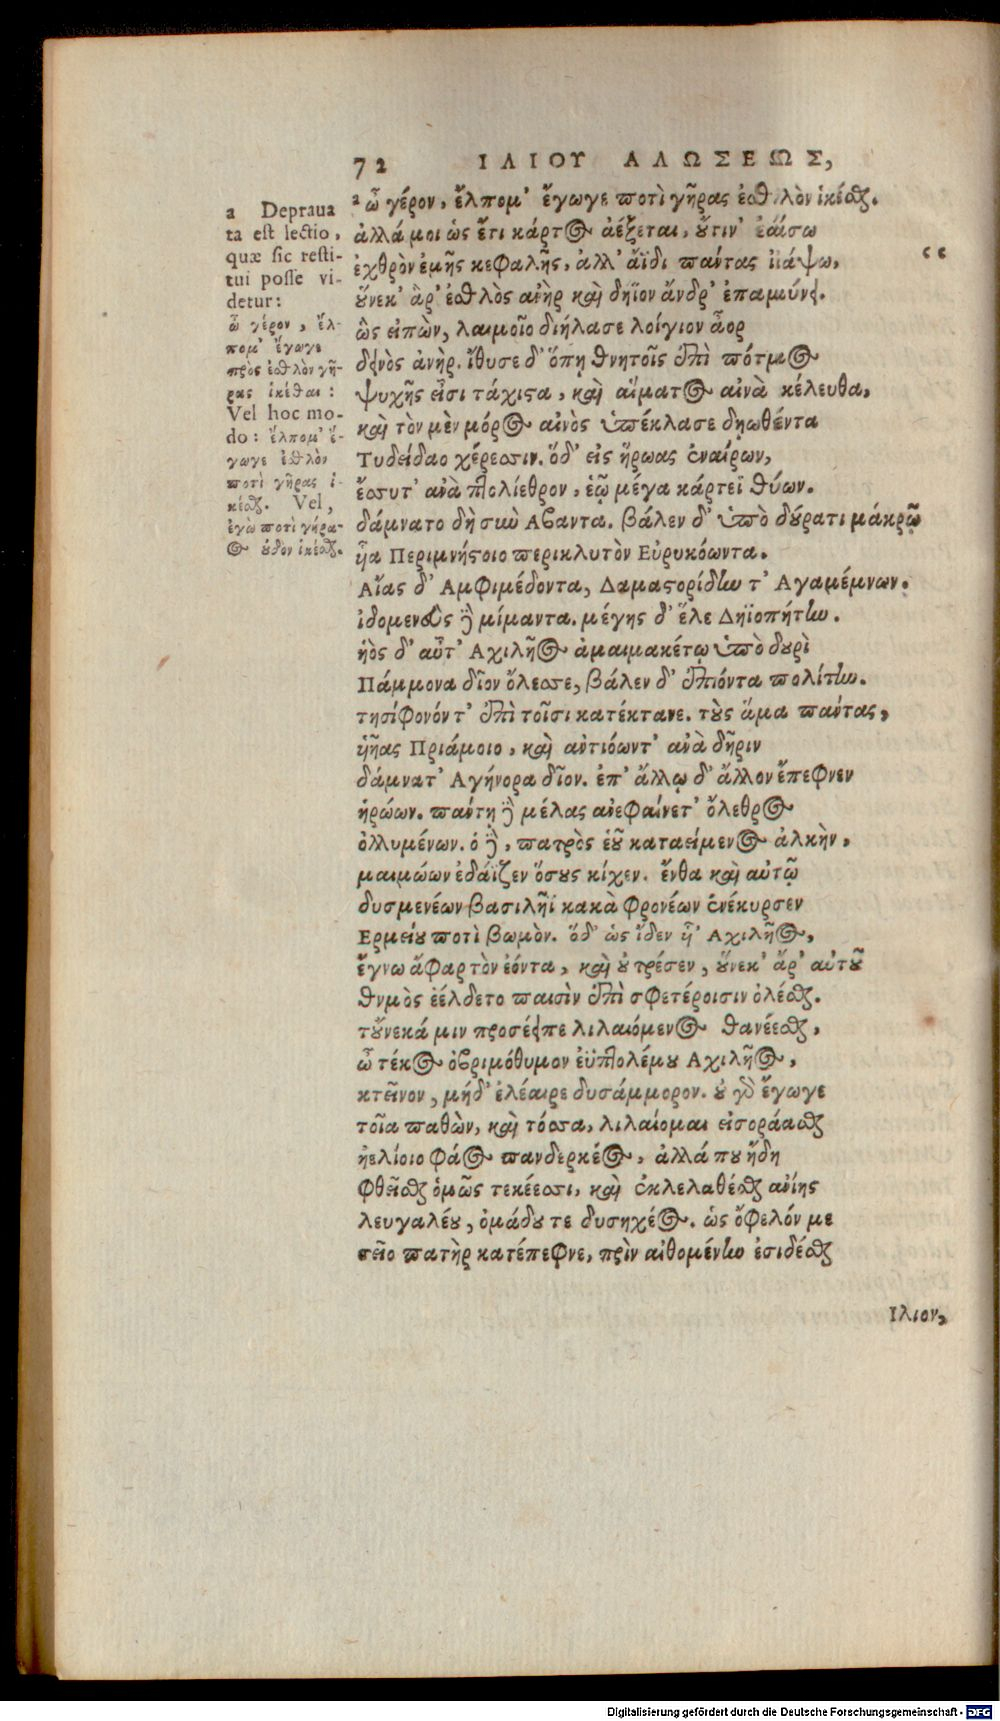 72 ΙΛΙΟΥ ΑΛΩΣΕΩΣ,
a Deprava
ta est lectio,
quæ sic resti-
tui posse vi-
detur:
ὦ γέρον, ἔλ-
πομ' ἔγωγε
πρὸς ἐσθλὸν γῆ-
ρας ἱκέσθαι:
Vel hoc mo-
do: ἔλπομ' ἔ-
γωγε ἐσθλὸν
ποτὶ γῆρας ἱ-
κέσθαι. Vel,
ἐγὼ ποτὶ γήρα-
ος οὐδὸν ἱκέσθαι.
a ὦ γέρον, ἔλπομ' ἔγωγε ποτὶ γῆρας ἐσθλὸν ἱκέσθαι.
ἀλλά μοι ὡς ἔτι κάρτος ἀέξεται, οὔτιν' ἐάσω
ἐχθρὸν ἐμῆς κεφαλῆς, ἀλλ' ἄϊδι πάντας ἰάψω,
οὕνεκ' ἂρ' ἐσθλὸς ἀνὴρ καὶ δήϊον ἄνδρ' ἐπαμύνει.
ὣς εἰπὼν, λαιμοῖο διήλασε λοίγιον ἆορ
δεινὸς ἀνήρ. ἴθυσε δ' ὅπῃ θνητοῖς ἐπὶ πότμος
ψυχῆς εἶσι τάχιστα, καὶ αἵματος αἰνὰ κέλευθα,
καὶ τὸν μὲν μόρος αἰνὸς ὑπέκλασε δῃωθέντα
Τυδείδαο χέρεσσιν. ὅδ' εἰς ἥρωας ἐναίρων,
ἔσσυτ' ἀνὰ πτολίεθρον, ἑῷ μέγα κάρτεϊ θύων.
δάμνατο δὴ σὺν Αβαντα. βάλεν δ' ὑπὸ δούρατι μάκρῷ
ἧα Περιμνήστοιο περικλυτὸν Εὐρυκόωντα.
Αἴας δ' Αμφιμέδοντα, Δαμαστορίδην τ' Αγαμέμνων.
ἰδομενεὺς δὲ μίμαντα. μέγης δ' ἕλε Δηϊοπήτην.
ἡὸς δ' αὖτ' Αχιλῆος ἀμαιμακέτῳ ὑπὸ δουρὶ
Πάμμονα δῖον ὄλεσσε, βάλεν δ' ἐπιόντα πολίτην.
τησίφονόν τ' ἐπὶ τοῖσι κατέκτανε. τοὺς ἅμα πάντας,
ὑῆας Πριάμοιο, καὶ ἀντιόωντ' ἀνὰ δῆριν
δάμνατ' Αγήνορα δῖον. ἐπ' ἄλλῳ δ' ἄλλον ἔπεφνεν
ἡρώων. πάντη δὲ μέλας ἀνεφαίνετ' ὄλεθρος
ὀλλυμένων. ὁ δὲ, πατρὸς ἑοῦ καταείμενος ἀλκὴν,
μαιμώων ἐδάϊζεν ὅσους κίχεν. ἔνθα καὶ αὐτῷ
δυσμενέων βασιλῆϊ κακὰ φρονέων ἐνέκυρσεν
Ερμείου ποτὶ βωμὸν. ὅδ' ὡς ἴδεν ἧ' Αχιλῆος,
ἔγνω ἄφαρ τὸν ἐόντα, καὶ οὐ τρέσεν, οὕνεκ' ἄρ' αὐτοῦ
θυμὸς ἐέλδετο παισὶν ἐπὶ σφετέροισιν ὀλέσθαι.
τοὔνεκά μιν προσέειπε λιλαιόμενος θανέεσθαι,
ὦ τέκος ὀβριμόθυμον ἐϋπτολέμου Αχιλῆος,
κτεῖνον, μήδ' ἐλέαιρε δυσάμμορον. οὐ γὰρ ἔγωγε
τοῖα παθὼν, καὶ τόσσα, λιλαίομαι εἰσοράασθαι
ἠελίοιο φάος πανδερκέος, ἀλλά που ἤδη
φθεῖσθαι ὁμῶς τεκέεσσι, καὶ ἐκλελαθέσθαι ἀνίης
λευγαλέου, ὁμάδου τε δυσηχέος. ὡς ὄφελόν με
σεῖο πατὴρ κατέπεφνε, πρὶν αἰθομένην ἐσιδέσθαι
Ιλιον,
Digitalisierung gefördert durch die Deutsche Forschungsgemeinschaft - DFG